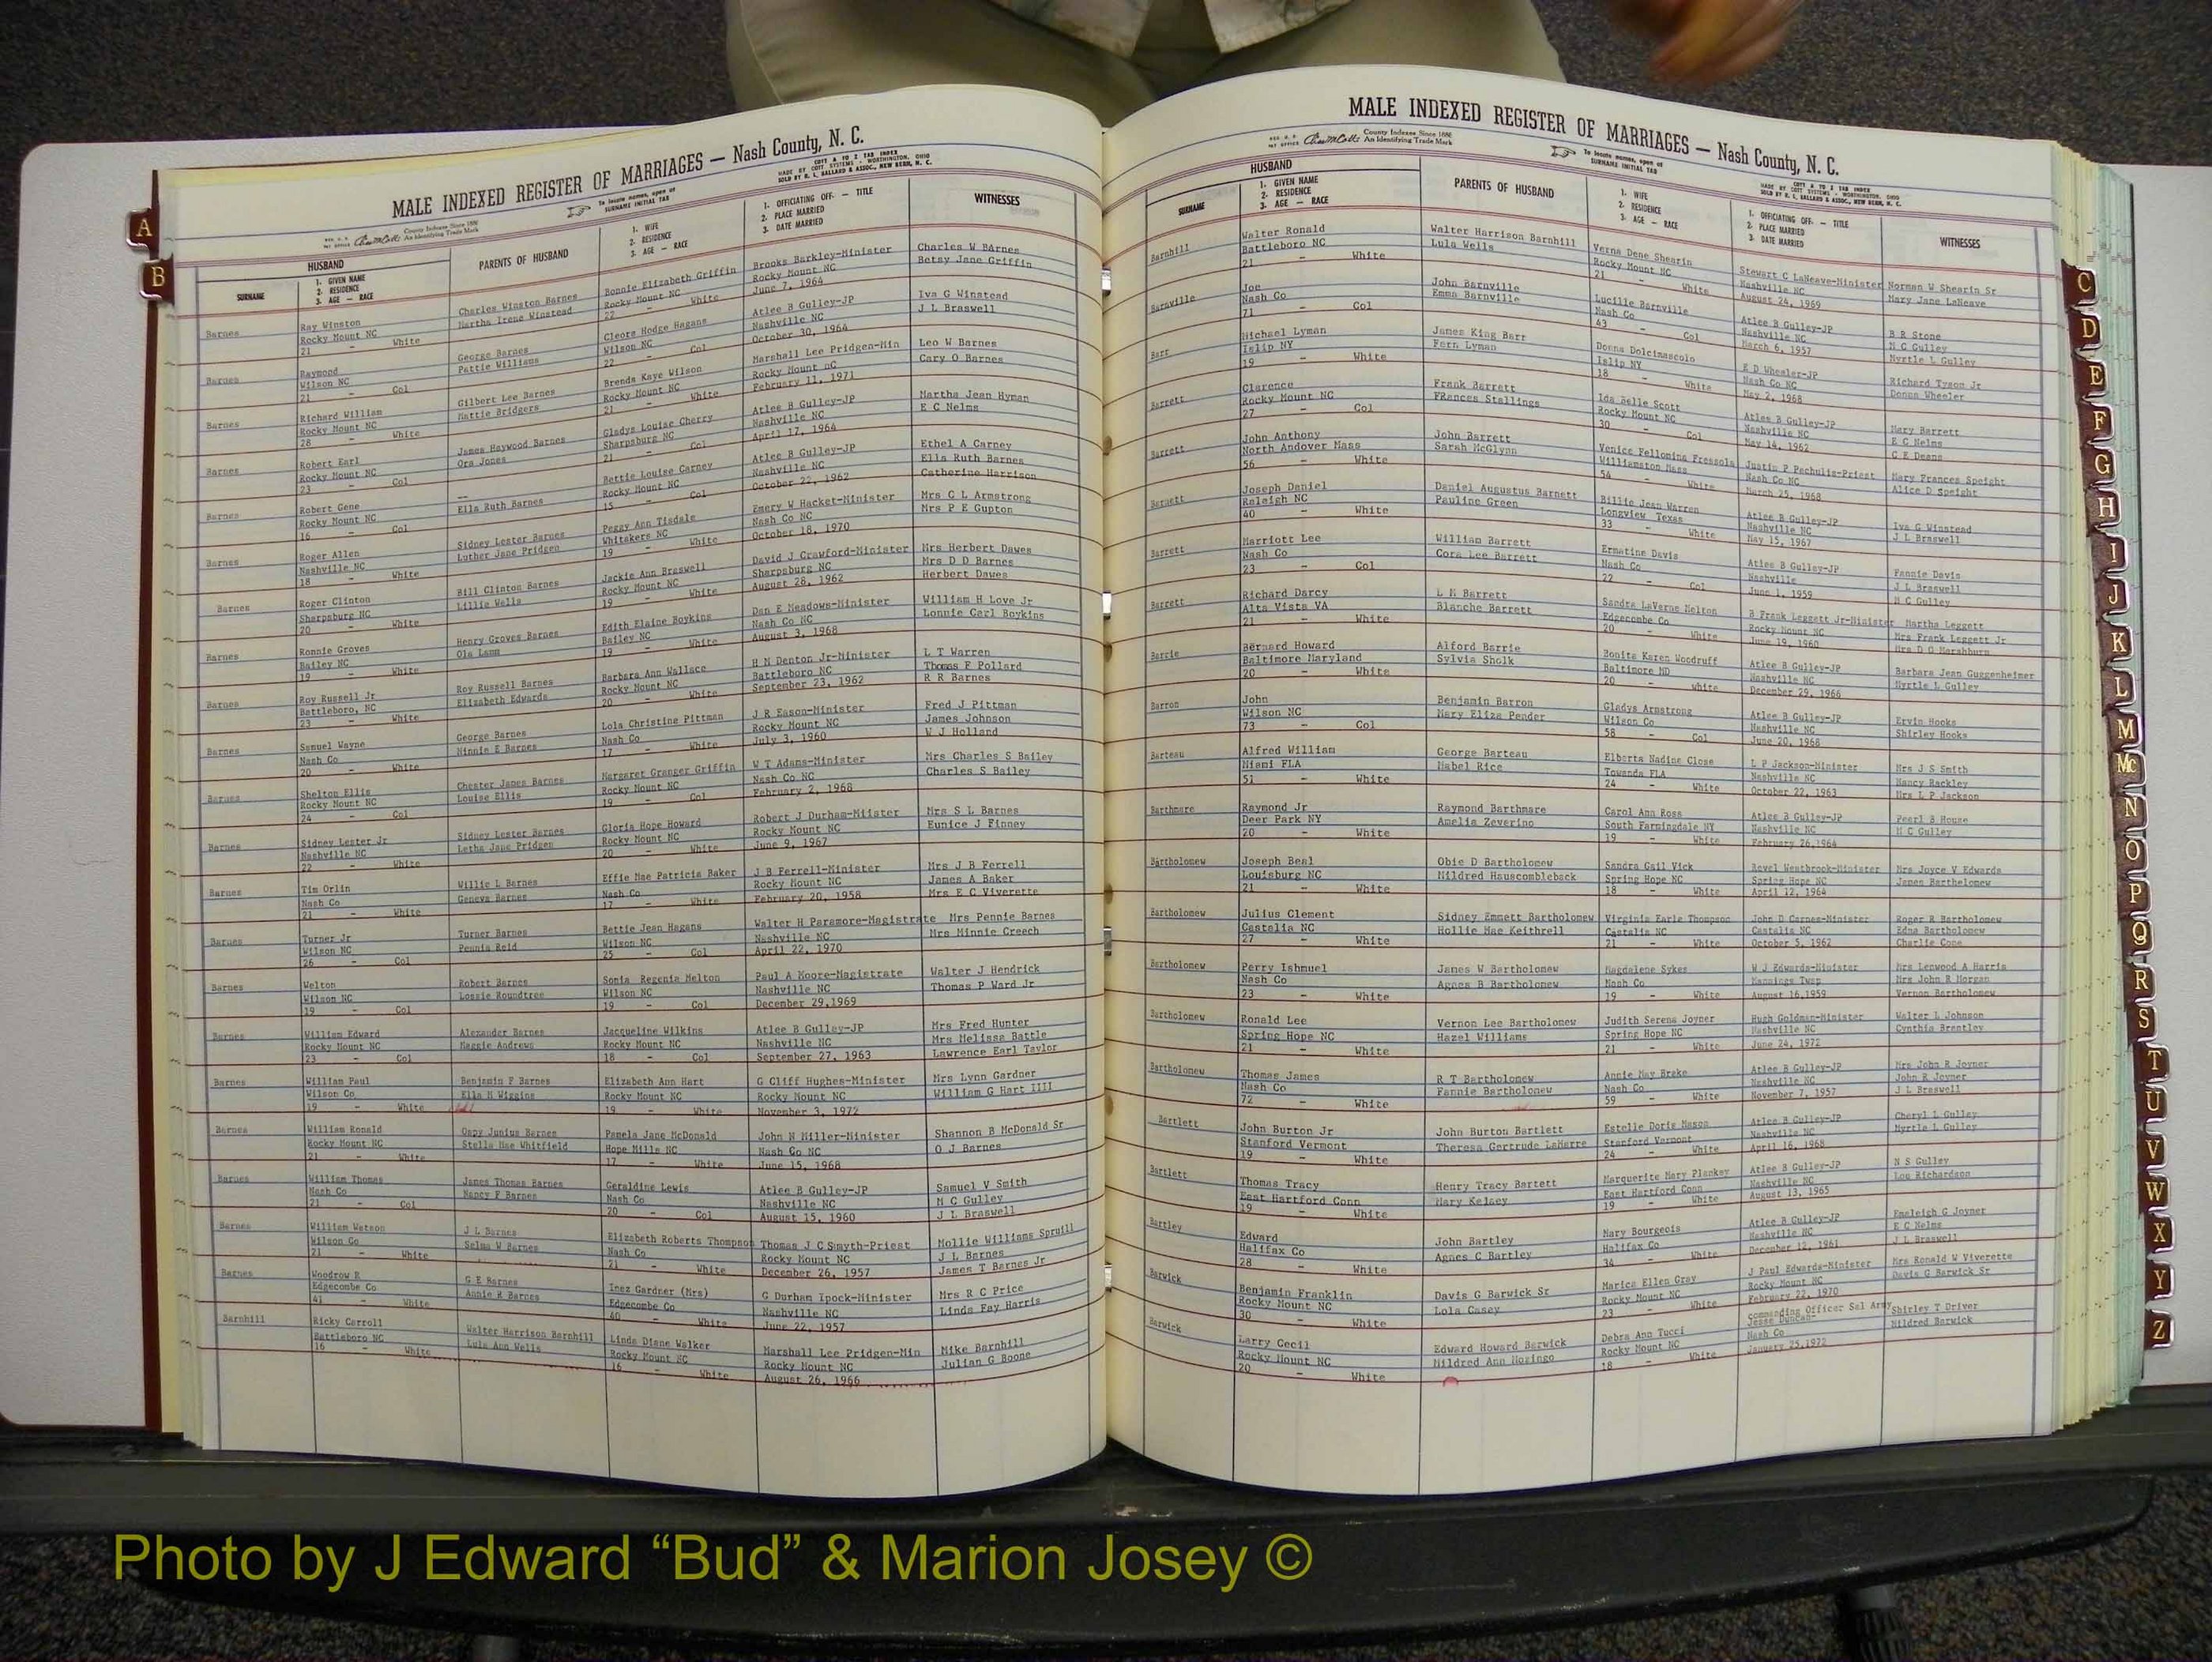 MALE INDEXED REGISTER OF MARRIAGES — Nash County, N. C.
County Indexes Since 1888
An Identifying Trade Mark
To locate names, open at
SURNAME INITIAL TAB
COTT A TO Z TAB INDEX
MADE BY COTT SYSTEMS - WORTHINGTON, OHIO
SOLD BY R. L. BALLARD & ASSOC., NEW BERN, N. C.
HUSBAND
SURNAME
1. GIVEN NAME
2. RESIDENCE
3. AGE — RACE
PARENTS OF HUSBAND
1. WIFE
2. RESIDENCE
3. AGE — RACE
1. OFFICIATING OFF. — TITLE
2. PLACE MARRIED
3. DATE MARRIED
WITNESSES
Barnes Ray Winston Charles Winston Barnes Bonnie Elizabeth Griffin Brooks Barkley-Minister Charles W BArnes
Rocky Mount NC Martha Irene Winstead Rocky Mount NC Rocky Mount NC Betsy Jane Griffin
21 - White 22 - White June 7, 1964
Barnes Raymond George Barnes Cleora Hodge Hagans Atlee B Gulley-JP Iva G Winstead
Wilson NC Pattie Williams Wilson NC Nashville NC J L Braswell
21 - Col 22 - Col October 30, 1964
Barnes Richard William Gilbert Lee Barnes Brenda Kaye Wilson Marshall Lee Pridgen-Min Leo W Barnes
Rocky Mount NC Mattie Bridgers Rocky Mount NC Rocky Mount nC Cary O Barnes
28 - White 21 - White February 11, 1971
Barnes Robert Earl James Haywood Barnes Gladys Louise Cherry Atlee B Gulley-JP Martha Jean Hyman
Rocky Mount NC Ora Jones Sharpsburg NC Nashville NC E C Nelms
23 - Col 21 - Col April 17, 1964
Barnes Robert Gene -- Bettie Louise Carney Atlee B Gulley-JP Ethel A Carney
Rocky Mount NC Ella Ruth Barnes Rocky Mount NC Nashville NC Ella Ruth Barnes
16 - Col 15 - Col October 22, 1962 Catherine Harrison
Barnes Roger Allen Sidney Lester Barnes Peggy Ann Tisdale Emery W Hacket-Minister Mrs C L Armstrong
Nashville NC Luther Jane Pridgen Whitakers NC Nash Co NC Mrs P E Gupton
18 - White 19 - White October 18, 1970
Barnes Roger Clinton Bill Clinton Barnes Jackie Ann Braswell David J Crawford-Minister Mrs Herbert Dawes
Sharpsburg NC Lillie Wells Rocky Mount NC Sharpsburg NC Mrs D D Barnes
20 - White 19 - White August 28, 1962 Herbert Dawes
Barnes Ronnie Groves Henry Groves Barnes Edith Elaine Boykins Dan E Meadows-Minister William H Love Jr
Bailey NC Ola Lamm Bailey NC Nash Co NC Lonnie Carl Boykins
19 - White 19 - White August 3, 1968
Barnes Roy Russell Jr Roy Russell Barnes Barbara Ann Wallace H N Denton Jr-Minister L T Warren
Battleboro, NC Elizabeth Edwards Rocky Mount NC Battleboro NC Thomas F Pollard
23 - White 20 - White September 23, 1962 R R Barnes
Barnes Samuel Wayne George Barnes Lola Christine Pittman J R Eason-Minister Fred J Pittman
Nash Co Minnie E Barnes Nash Co Rocky Mount NC James Johnson
20 - White 17 - White July 3, 1960 W J Holland
Barnes Shelton Ellis Chester James Barnes Margaret Granger Griffin W T Adams-Minister Mrs Charles S Bailey
Rocky Mount NC Louise Ellis Rocky Mount NC Nash Co NC Charles S Bailey
24 - Col 19 - Col February 2, 1968
Barnes Sidney Lester Jr Sidney Lester Barnes Gloria Hope Howard Robert J Durham-Miister Mrs S L Barnes
Nashville NC Letha Jane Pridgen Rocky Mount NC Rocky Mount NC Eunice J Finney
22 - White 20 - White June 9, 1967
Barnes Tim Orlin Willie L Barnes Effie Mae Patricia Baker J B Ferrell-Minister Mrs J B Ferrell
Nash Co Geneva Barnes Nash Co Rocky Mount NC James A Baker
21 - White 17 - White February 20, 1958 Mrs E C Viverette
Barnes Turner Jr Turner Barnes Bettie Jean Hagans Walter H Paramore-Magistrate Mrs Pennie Barnes
Wilson NC Pennia Reid Wilson NC Nashville NC Mrs Minnie Creech
26 - Col 25 - Col April 22, 1970
Barnes Welton Robert Barnes Sonia Regenia Melton Paul A Koore-Magistrate Walter J Hendrick
Wilson NC Lossie Roundtree Wilson NC Nashville NC Thomas P Ward Jr
19 - Col 19 - Col December 29,1969
Barnes William Edward Alexander Barnes Jacqueline Wilkins Atlee B Gulley-JP Mrs Fred Hunter
Rocky Mount NC Maggie Andrews Rocky Mount NC Nashville NC Mrs Melissa Battle
23 - Col 18 - Col September 27, 1963 Lawrence Earl Taylor
Barnes William Paul Benjamin F Barnes Elizabeth Ann Hart G Cliff Hughes-Minister Mrs Lynn Gardner
Wilson Co Ella M Wiggins Rocky Mount NC Rocky Mount NC William G Hart IIII
19 - White 19 - White November 3, 1972
Barnes William Ronald Ospy Junius Barnes Pamela Jane McDonald John N Miller-Minister Shannon B McDonald Sr
Rocky Mount NC Stella Mae Whitfield Hope Mills NC Nash Co NC O J Barnes
21 - White 17 - White June 15, 1968
Barnes William Thomas James Thomas Barnes Geraldine Lewis Atlee B Gulley-JP Samuel V Smith
Nash Co Nancy F Barnes Nash Co Nashville NC M C Gulley
21 - Col 20 - Col August 15, 1960 J L Braswell
Barnes William Watson J L Barnes Elizabeth Roberts Thompson Thomas J C Smyth-Priest Mollie Williams Spruill
Wilson Co Selma W Barnes Nash Co Rocky Mount NC J L Barnes
21 - White 21 - White December 26, 1957 James T Barnes Jr
Barnes Woodrow R G E Barnes Inez Gardner (Mrs) G Durham Ipock-Minister Mrs R C Price
Edgecombe Co Annie R Barnes Edgecombe Co Nashville NC Linda Fay Harris
41 - White 40 - White June 22, 1957
Barnhill Ricky Carroll Walter Harrison Barnhill Linda Diane Walker Marshall Lee Pridgen-Min Mike Barnhill
Battleboro NC Lula Ann Wells Rocky Mount NC Rocky Mount NC Julian G Boone
16 - White 16 - White August 26, 1966
MALE INDEXED REGISTER OF MARRIAGES — Nash County, N. C.
County Indexes Since 1888
An Identifying Trade Mark
To locate names, open at
SURNAME INITIAL TAB
COTT A TO Z TAB INDEX
MADE BY COTT SYSTEMS - WORTHINGTON, OHIO
SOLD BY R. L. BALLARD & ASSOC., NEW BERN, N. C.
HUSBAND
SURNAME
1. GIVEN NAME
2. RESIDENCE
3. AGE — RACE
PARENTS OF HUSBAND
1. WIFE
2. RESIDENCE
3. AGE — RACE
1. OFFICIATING OFF. — TITLE
2. PLACE MARRIED
3. DATE MARRIED
WITNESSES
Barnhill Walter Ronald Walter Harrison Barnhill Verna Dene Shearin Stewart C LaNeave-Minister Norman W Shearin Sr
Battleboro NC Lula Wells Rocky Mount NC Nashville NC Mary Jane LaNeave
21 - White 21 - White August 24, 1969
Barnville Joe John Barnville Lucille Barnville Atlee B Gulley-JP B R Stone
Nash Co Emma Barnville Nash Co Nashville NC M C Gulley
71 - Col 43 - Col March 6, 1957 Myrtle L Gulley
Barr Michael Lyman James King Barr Donna Dolcimascolo E D Wheeler-JP Richard Tyson Jr
Islip NY Fern Lyman Islip NY Nash Co NC Donna Wheeler
19 - White 18 - White May 2, 1968
Barrett Clarence Frank Barrett Ida Belle Scott Atlee B Gulley-JP Mary Barrett
Rocky Mount NC FRances Stallings Rocky Mount NC Nashville NC E C Nelms
27 - Col 30 - Col May 14, 1962 C E Deans
Barrett John Anthony John Barrett Venice Fellomina Fressola Justin P Pechulis-Priest Mary Frances Speight
North Andover Mass Sarah McGlynn Williamston Mass Nash Co NC Alice D Speight
56 - White 54 - White March 25, 1968
Barnett Joseph Daniel Daniel Augustus Barnett Billie Jean Warren Atlee B Gulley-JP Iva G Winstead
Raleigh NC Pauline Green Longview Texas Nashville NC J L Braswell
40 - White 33 - White May 15, 1967
Barrett Marriott Lee William Barrett Ernatine Davis Atlee B Gulley-JP Fannie Davis
Nash Co Cora Lee Barrett Nash Co Nashville J L Braswell
23 - Col 22 - Col June 1, 1959 M C Gulley
Barrett Richard Darcy L M Barrett Sandra LaVerne Melton B Frank Leggett Jr-Minister Martha Leggett
Alta Vista VA Blanche Barrett Edgecombe Co Rocky Mount NC Mrs Frank Leggett Jr
21 - White 20 - White June 19, 1960 Mrs D G Marshburn
Barrie Bernard Howard Alford Barrie Bonita Karen Woodruff Atlee B Gulley-JP Barbara Jean Guggenheimer
Baltimore Maryland Sylvia Sholk Baltimore MD Nashville NC Myrtle L Gulley
20 - White 20 - white December 29, 1966
Barron John Benjamin Barron Gladys Armstrong Atlee B Gulley-JP Ervin Hooks
Wilson NC Mary Eliza Pender Wilson Co Nashville NC Shirley Hooks
73 - Col 58 - Col June 20, 1968
Barteau Alfred William George Barteau Elberta Nadine Close L P Jackson-Minister Mrs J S Smith
Miami FLA Mabel Rice Towanda FLA Nashville NC Nancy Rackley
51 - White 24 - White October 22, 1963 Mrs L P Jackson
Barthmare Raymond Jr Raymond Barthmare Carol Ann Ross Atlee B Gulley-JP Pearl B House
Deer Park NY Amelia Zeverino South Farmingdale NY Nashville NC M C Gulley
20 - White 19 - White February 26,1964
Bartholomew Joseph Beal Obie D Bartholomew Sandra Gail Vick Rovel Westbrook-Minister Mrs Joyce V Edwards
Louisburg NC Mildred Hauscombleback Spring Hope NC Spring Hope NC James Bartholomew
21 - White 18 - White April 12, 1964
Bartholomew Julius Clement Sidney Emmett Bartholomew Virginia Earle Thompson John D Carnes-Minister Roger R Bartholomew
Castalia NC Hollie Mae Keithrell Castalia NC Castalia NC Edna Bartholomew
27 - White 21 - White October 5, 1962 Charlie Cone
Bartholomew Perry Ishmuel James W Bartholomew Magdalene Sykes W J Edwards-Minister Mrs Lenwood A Harris
Nash Co Agnes B Bartholomew Nash Co Mannings Twsp Mrs John R Morgan
23 - White 19 - White August 16,1959 Vernon Bartholomew
Bartholomew Ronald Lee Vernon Lee Bartholomew Judith Serena Joyner Hugh Goldman-Minister Walter L Johnson
Spring Hope NC Hazel Williams Spring Hope NC Nashville NC Cynthia Brantley
21 - White 21 - White June 24, 1972
Bartholomew Thomas James R T Bartholomew Annie May Brake Atlee B Gulley-JP Mrs John R Joyner
Nash Co Fannie Bartholomew Nash Co Nashville NC John R Joyner
72 - White 59 - White November 7, 1957 J L Braswell
Bartlett John Burton Jr John Burton Bartlett Estelle Doris Mason Atlee B Gulley-JP Cheryl L Gulley
Stanford Vermont Theresa Gertrude LaMarre Stanford Vermont Nashville NC Myrtle L Gulley
19 - White 24 - White April 16, 1968
Bartlett Thomas Tracy Henry Tracy Bartett Marguerite Mary Plankey Atlee B Gulley-JP N S Gulley
East Hartford Conn Mary Kelsey East Hartford Conn Nashville NC Lou Richardson
19 - White 19 - White August 13, 1965
Bartley Edward John Bartley Mary Bourgeois Atlee B Gulley-JP Emaleigh G Joyner
Halifax Co Agnes C Bartley Halifax Co Nashville NC E C Nelms
28 - White 34 - White December 12, 1961 J L Braswell
Barwick Benjamin Franklin Davis G Barwick Sr Marica Ellen Gray J Paul Edwards-Minister Mrs Ronald W Viverette
Rocky Mount NC Lola Casey Rocky Mount NC Rocky Mount NC Davis G Barwick Sr
30 - White 23 - White February 22, 1970
Barwick Larry Cecil Edward Howard Barwick Debra Ann Tucci commanding Officer Sal Army Jesse Duncan- Shirley T Driver
Rocky Mount NC Mildred Ann Mozingo Rocky Mount NC Nash Co Mildred Barwick
20 - White 18 - White January 25,1972
A
B
C
D
E
F
G
H
I
J
K
L
M
Mc
N
O
P
Q
R
S
T
U
V
W
X
Y
Z
Photo by J Edward “Bud” & Marion Josey ©